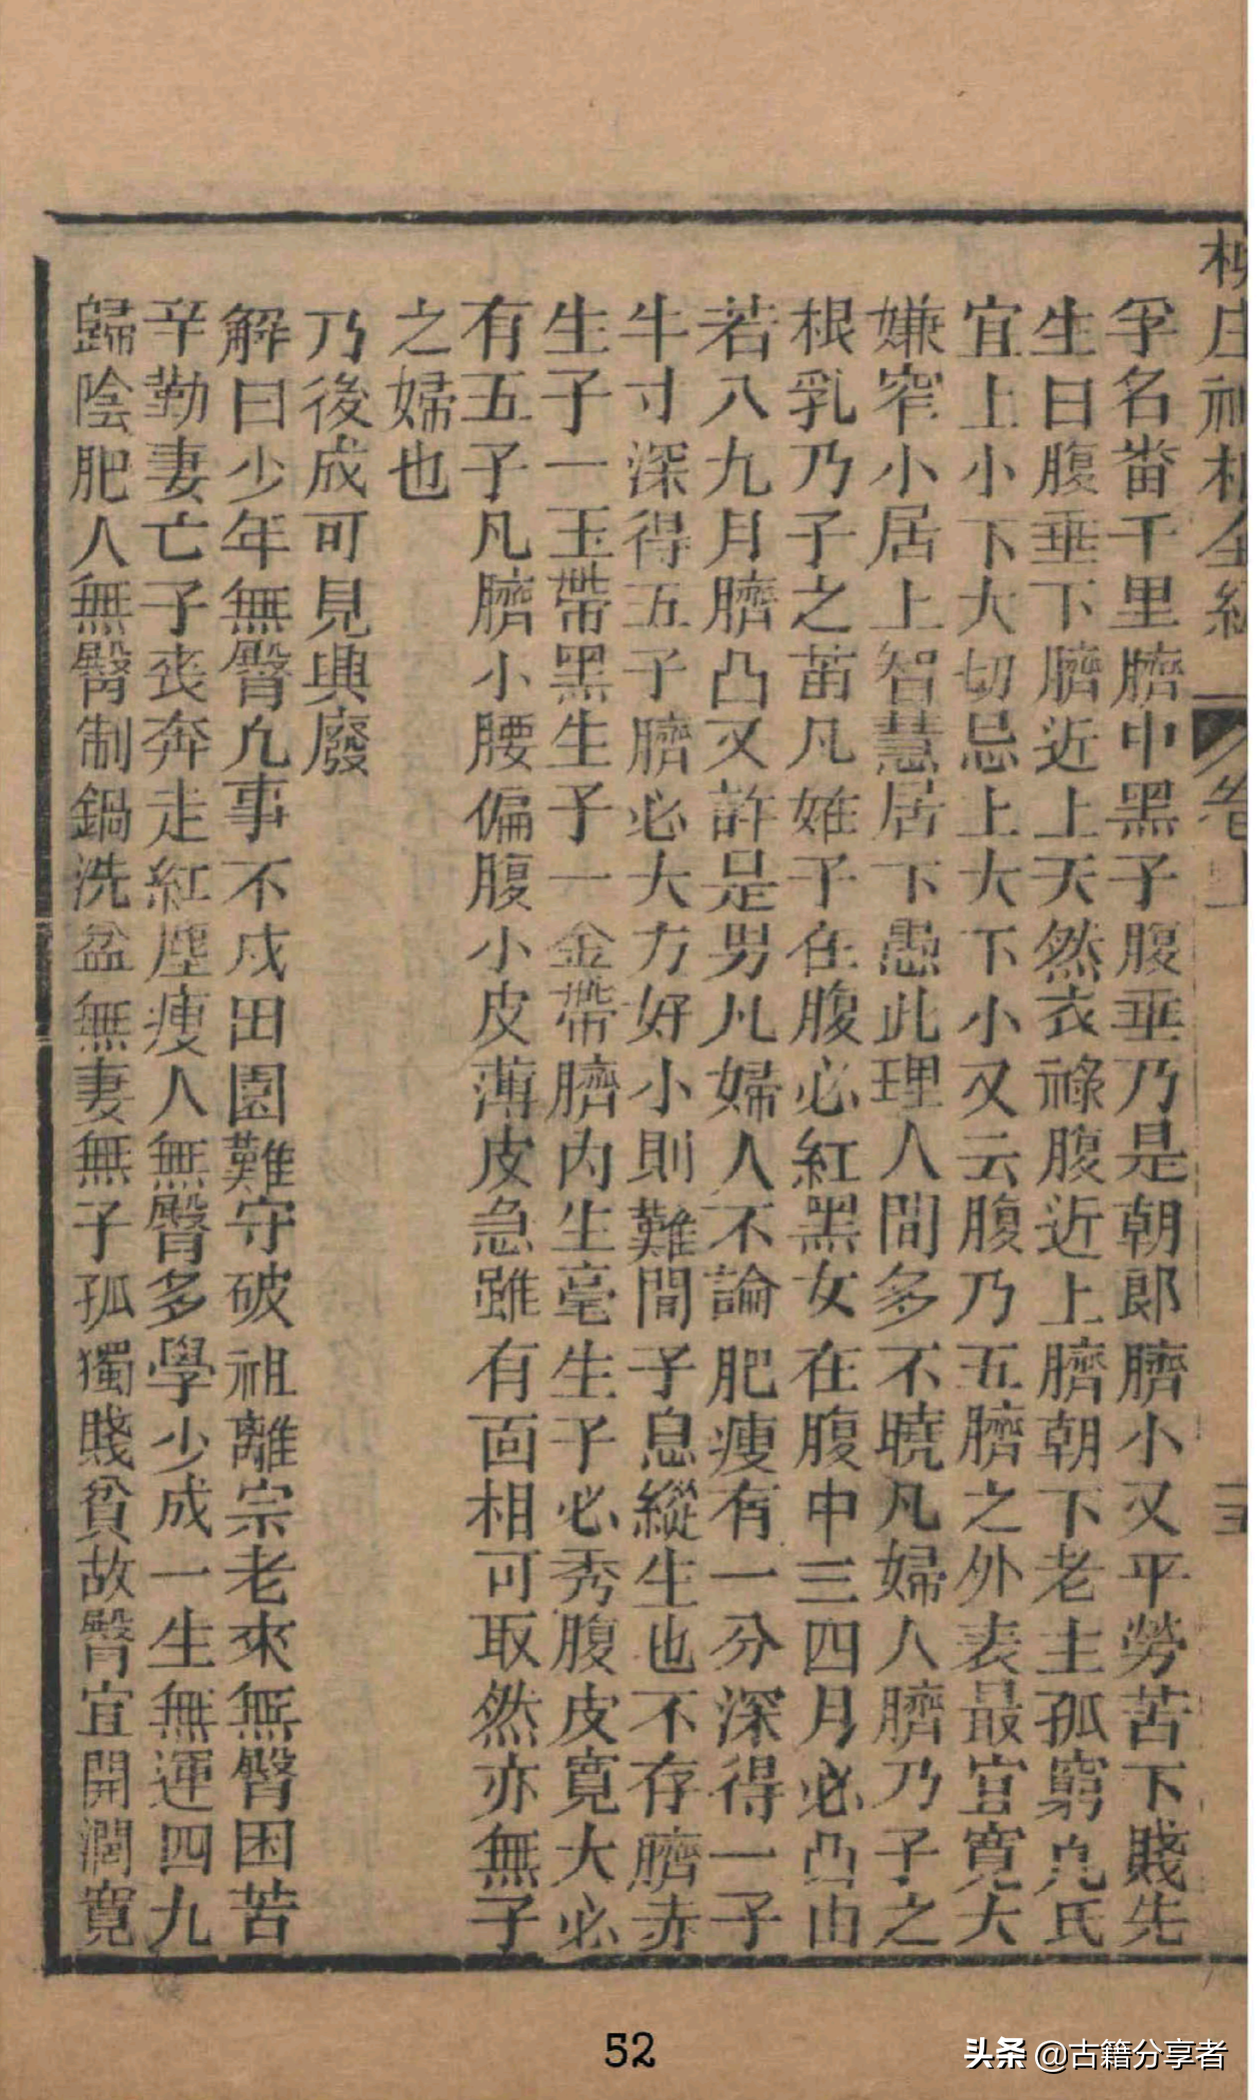 柳庄神相全編 卷中
孚名畨千里臍中黑子腹垂乃是朝郎臍小又平勞苦下賤先
生曰腹垂下臍近上天然衣祿腹近上臍朝下老主孤窮鬼氏
宜上小下大切忌上大下小又云腹乃五臍之外表最宜寬大
嫌窄小居上智慧居下愚此理人間多不曉凡婦人臍乃子之
根乳乃子之苗凡姙子在腹必紅黑女在腹中三四月必凸由
若八九月臍凸又許是男凡婦人不論肥瘦有一分深得一子
牛寸深得五子臍必大方好小則難間子息縱生也不存臍赤
生子一玉帶黑生子一金帶臍內生毫生子必秀腹皮寬大必
有五子凡臍小腰偏腹小皮薄皮急雖有面相可取然亦無子
之婦也
乃後成可見興廢
解曰少年無臀凢事不成田園難守破祖離宗老來無臀困苦
辛勤妻亡子丧奔走紅塵瘦人無臀多學少成一生無運四九
歸陰肥人無臀制鍋洗盆無妻無子孤獨賤貧故臀宜開濶寬
52
头条 @古籍分享者